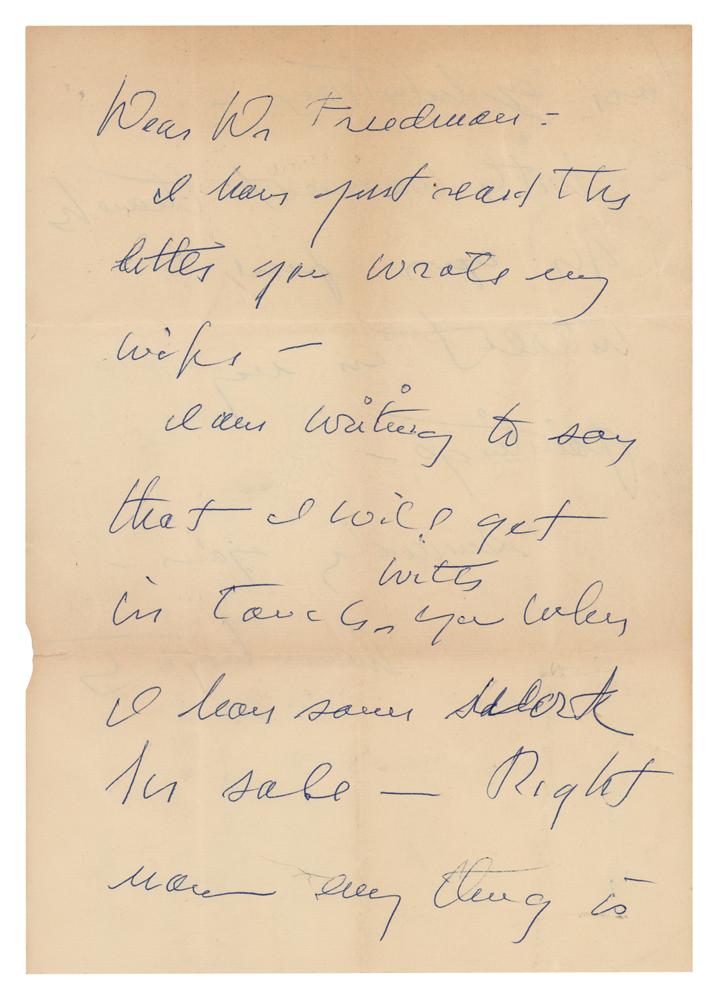 Dear Mr Friedman =
I have just read the
letter you wrote my
wife —
I am writing to say
that I will get
with
in touch you when
I have some work
for sale — Right
now every thing is